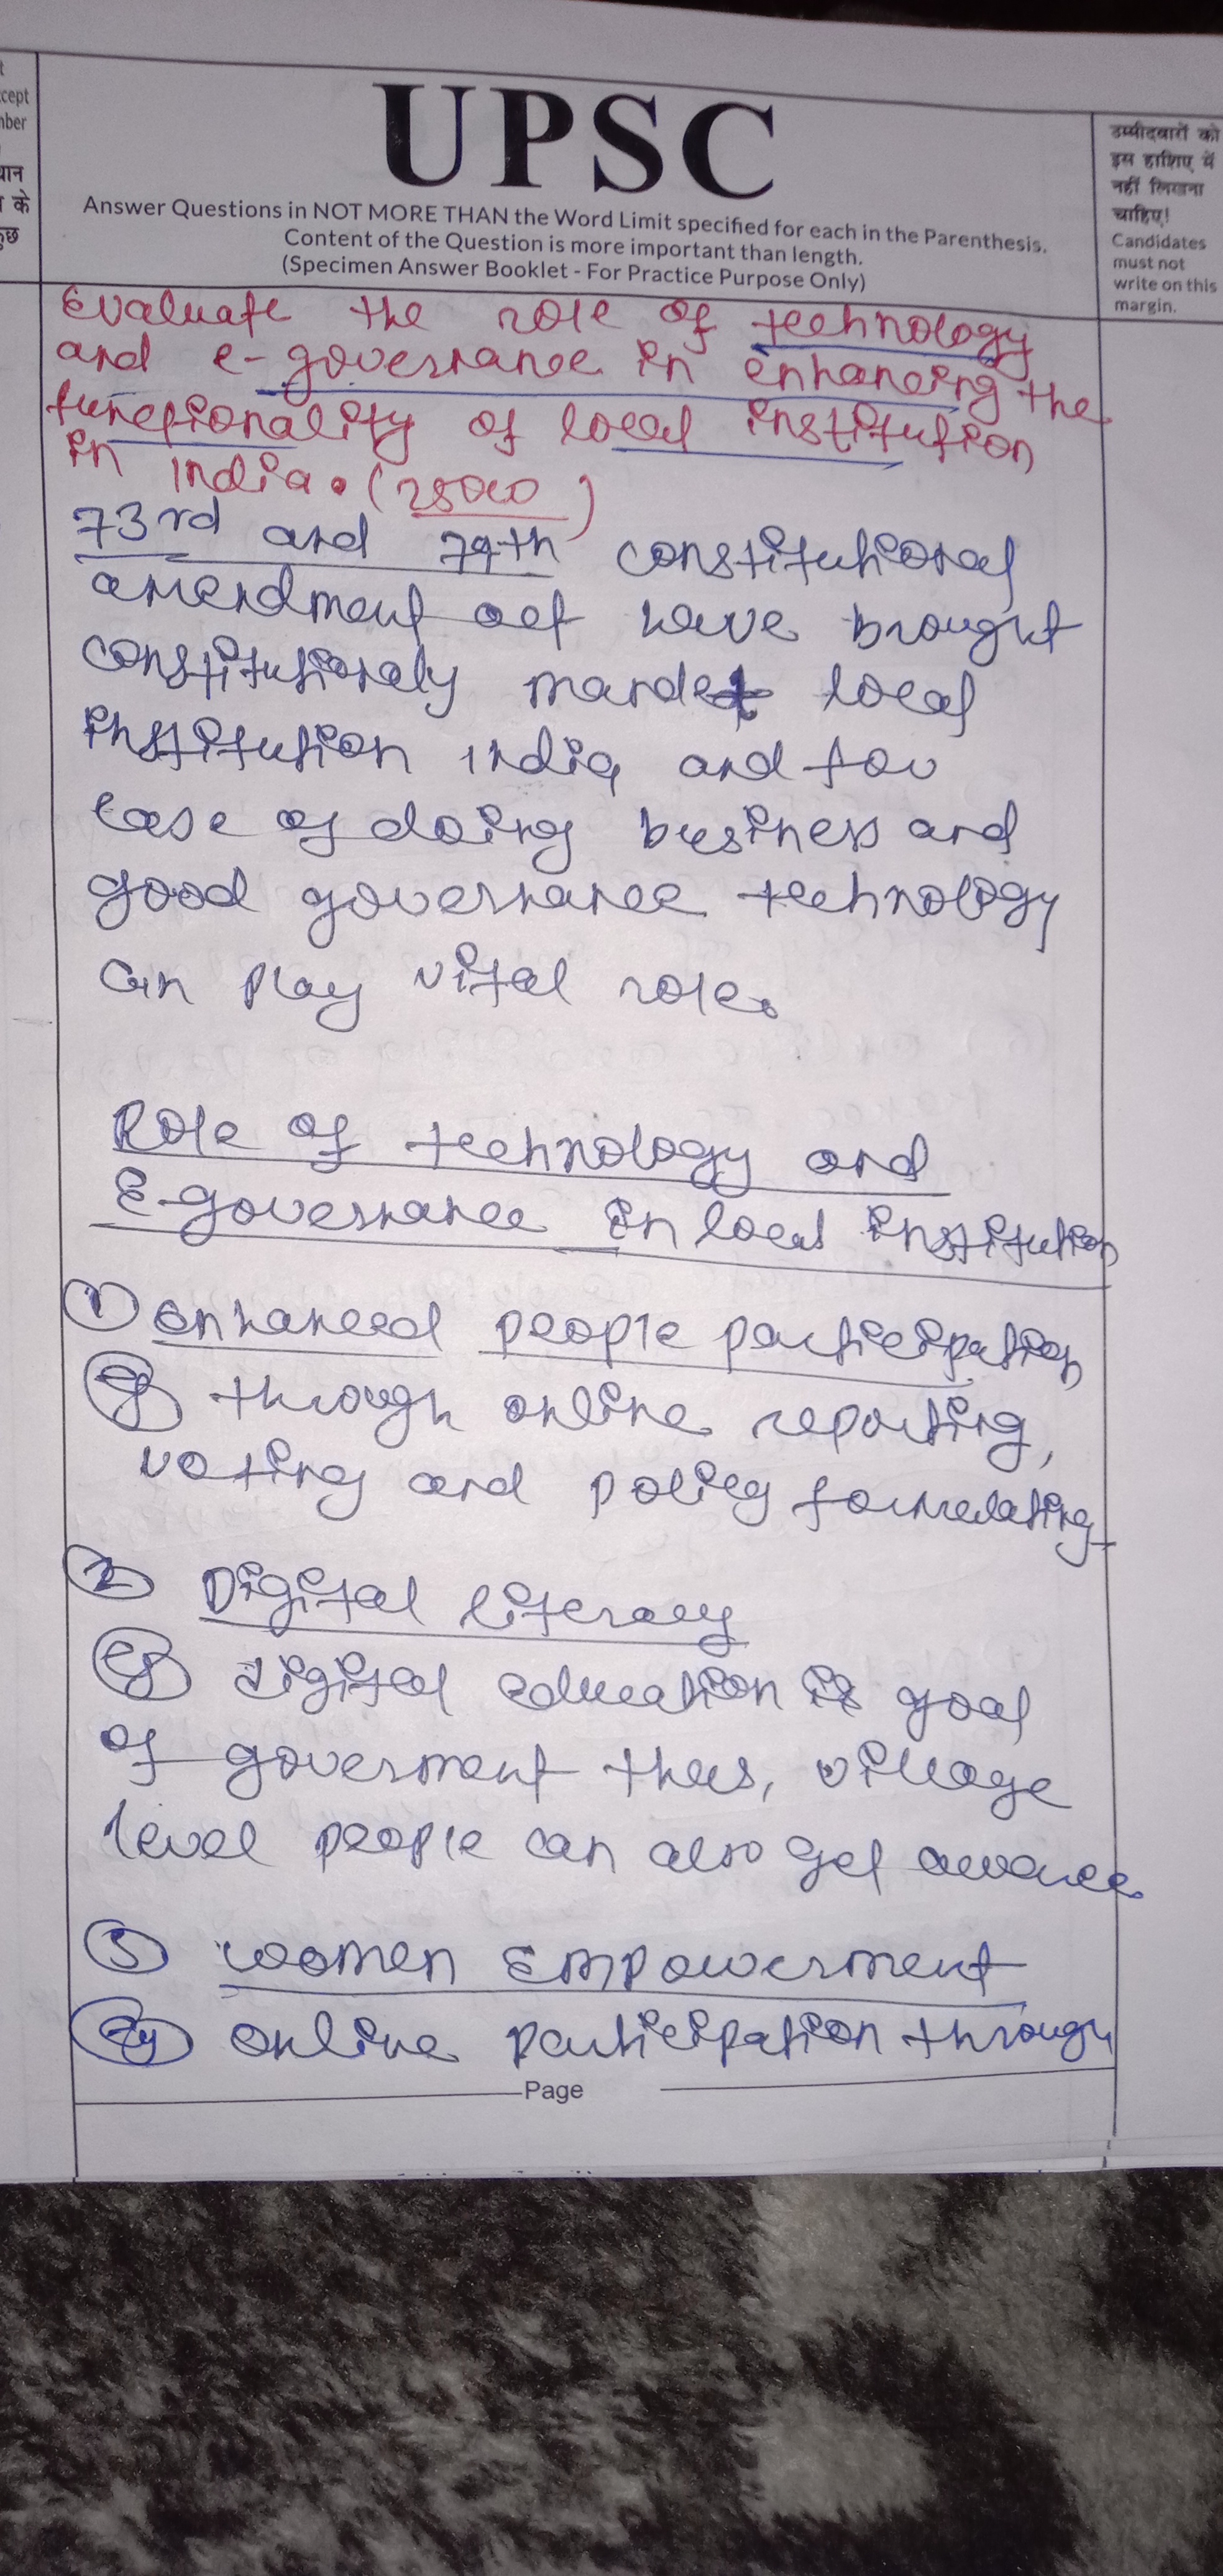 t
cept
nber
थान
के
कुछ
UPSC
Answer Questions in NOT MORE THAN the Word Limit specified for each in the Parenthesis.
Content of the Question is more important than length.
(Specimen Answer Booklet - For Practice Purpose Only)
उम्मीदवारों को
इस हाशिए में
नहीं लिखना
चाहिए!
Candidates
must not
write on this
margin.
Evaluate the role of technology
and e-governance in enhancing the
functionality of local institution
in India. (250
73rd and 74th constitutional
amendment act have brought
constitutionaly local
institution India and for
ease of doing business and
good governance technology
can play vital role.
Role of technology and
E-governance in local institution
① enhanced people participation
eg through online reporting,
voting and policy formulating
② Digital literacy
eg digital education is goal
of goverment thus, village
level people can also get aware.
③ women Empowerment
eg online participation through
Page